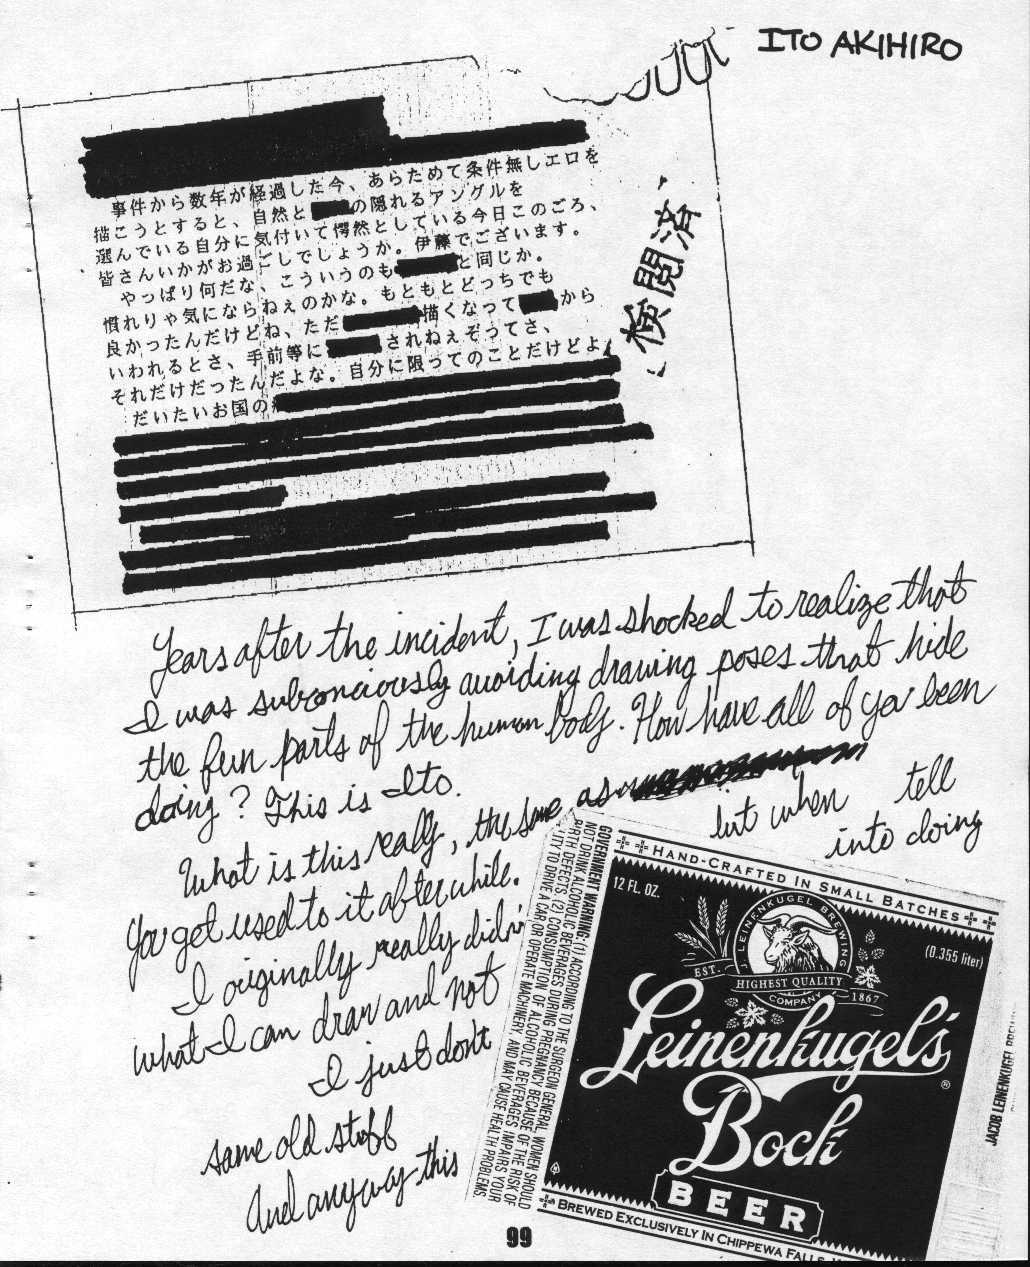 ITO AKIHIRO
事件から数年が経過した今、あらためて条件無しエロを
描こうとすると、自然と の隠れるアングルを
選んでいる自分に気付いて愕然としている今日このごろ、
皆さんいかがお過ごしでしょうか。伊藤でございます。
やっぱり何だな、こういうのも と同じか。
慣れりゃ気にならねぇのかな。もともとどっちでも
良かったんだけどね、ただ 描くなって から
いわれるとさ、手前等に されねぇぞってさ、
それだけだったんだよな。自分に限ってのことだけどよ
だいたいお国の
検閲済
Years after the incident, I was shocked to realize that
I was subconciously avoiding drawing poses that hide
the fun parts of the human body. How have all of ya been
doing? This is Ito.
What is this really, the same as
You get used to it after while.
I originally really didn' but when tell
what I can draw and not into doing
I just don't
same old stuff
And anyway this
GOVERNMENT WARNING: (1) ACCORDING TO THE SURGEON GENERAL, WOMEN SHOULD
NOT DRINK ALCOHOLIC BEVERAGES DURING PREGNANCY BECAUSE OF THE RISK OF
BIRTH DEFECTS. (2) CONSUMPTION OF ALCOHOLIC BEVERAGES IMPAIRS YOUR
ABILITY TO DRIVE A CAR OR OPERATE MACHINERY, AND MAY CAUSE HEALTH PROBLEMS.
HAND-CRAFTED IN SMALL BATCHES
12 FL. OZ.
(0.355 liter)
J. LEINENKUGEL BREWING
EST.
HIGHEST QUALITY
COMPANY
1867
Leinenkugel's®
Bock
BEER
BREWED EXCLUSIVELY IN CHIPPEWA FALLS,
JACOB LEINENKUGEL
99